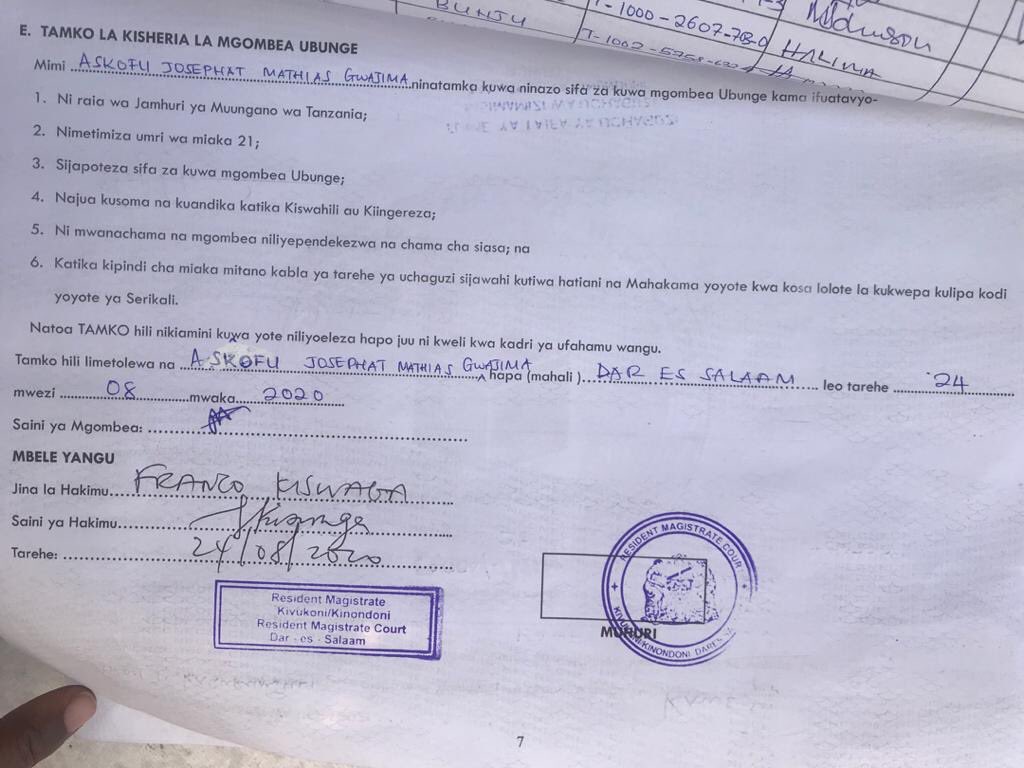 BUNJU
T-1000-2607-78-0
HALIMA
E. TAMKO LA KISHERIA LA MGOMBEA UBUNGE
Mimi ASKOFU JOSEPHAT MATHIAS GWAJIMA ninatamka kuwa ninazo sifa za kuwa mgombea Ubunge kama ifuatavyo-
1. Ni raia wa Jamhuri ya Muungano wa Tanzania;
2. Nimetimiza umri wa miaka 21;
3. Sijapoteza sifa za kuwa mgombea Ubunge;
4. Najua kusoma na kuandika katika Kiswahili au Kiingereza;
5. Ni mwanachama na mgombea niliyependekezwa na chama cha siasa; na
6. Katika kipindi cha miaka mitano kabla ya tarehe ya uchaguzi sijawahi kutiwa hatiani na Mahakama yoyote kwa kosa lolote la kukwepa kulipa kodi
yoyote ya Serikali.
Natoa TAMKO hili nikiamini kuwa yote niliyoeleza hapo juu ni kweli kwa kadri ya ufahamu wangu.
Tamko hili limetolewa na ASKOFU JOSEPHAT MATHIAS GWAJIMA hapa (mahali) DAR ES SALAAM leo tarehe 24
mwezi 08 mwaka 2020
Saini ya Mgombea:
MBELE YANGU
Jina la Hakimu FRANCO KISWAGA
Saini ya Hakimu
Tarehe: 24/08/2020
Resident Magistrate
Kivukoni/Kinondoni
Resident Magistrate Court
Dar - es - Salaam
RESIDENT MAGISTRATE COURT
KIVUKONI/KINONDONI DAR ES
MUHURI
7